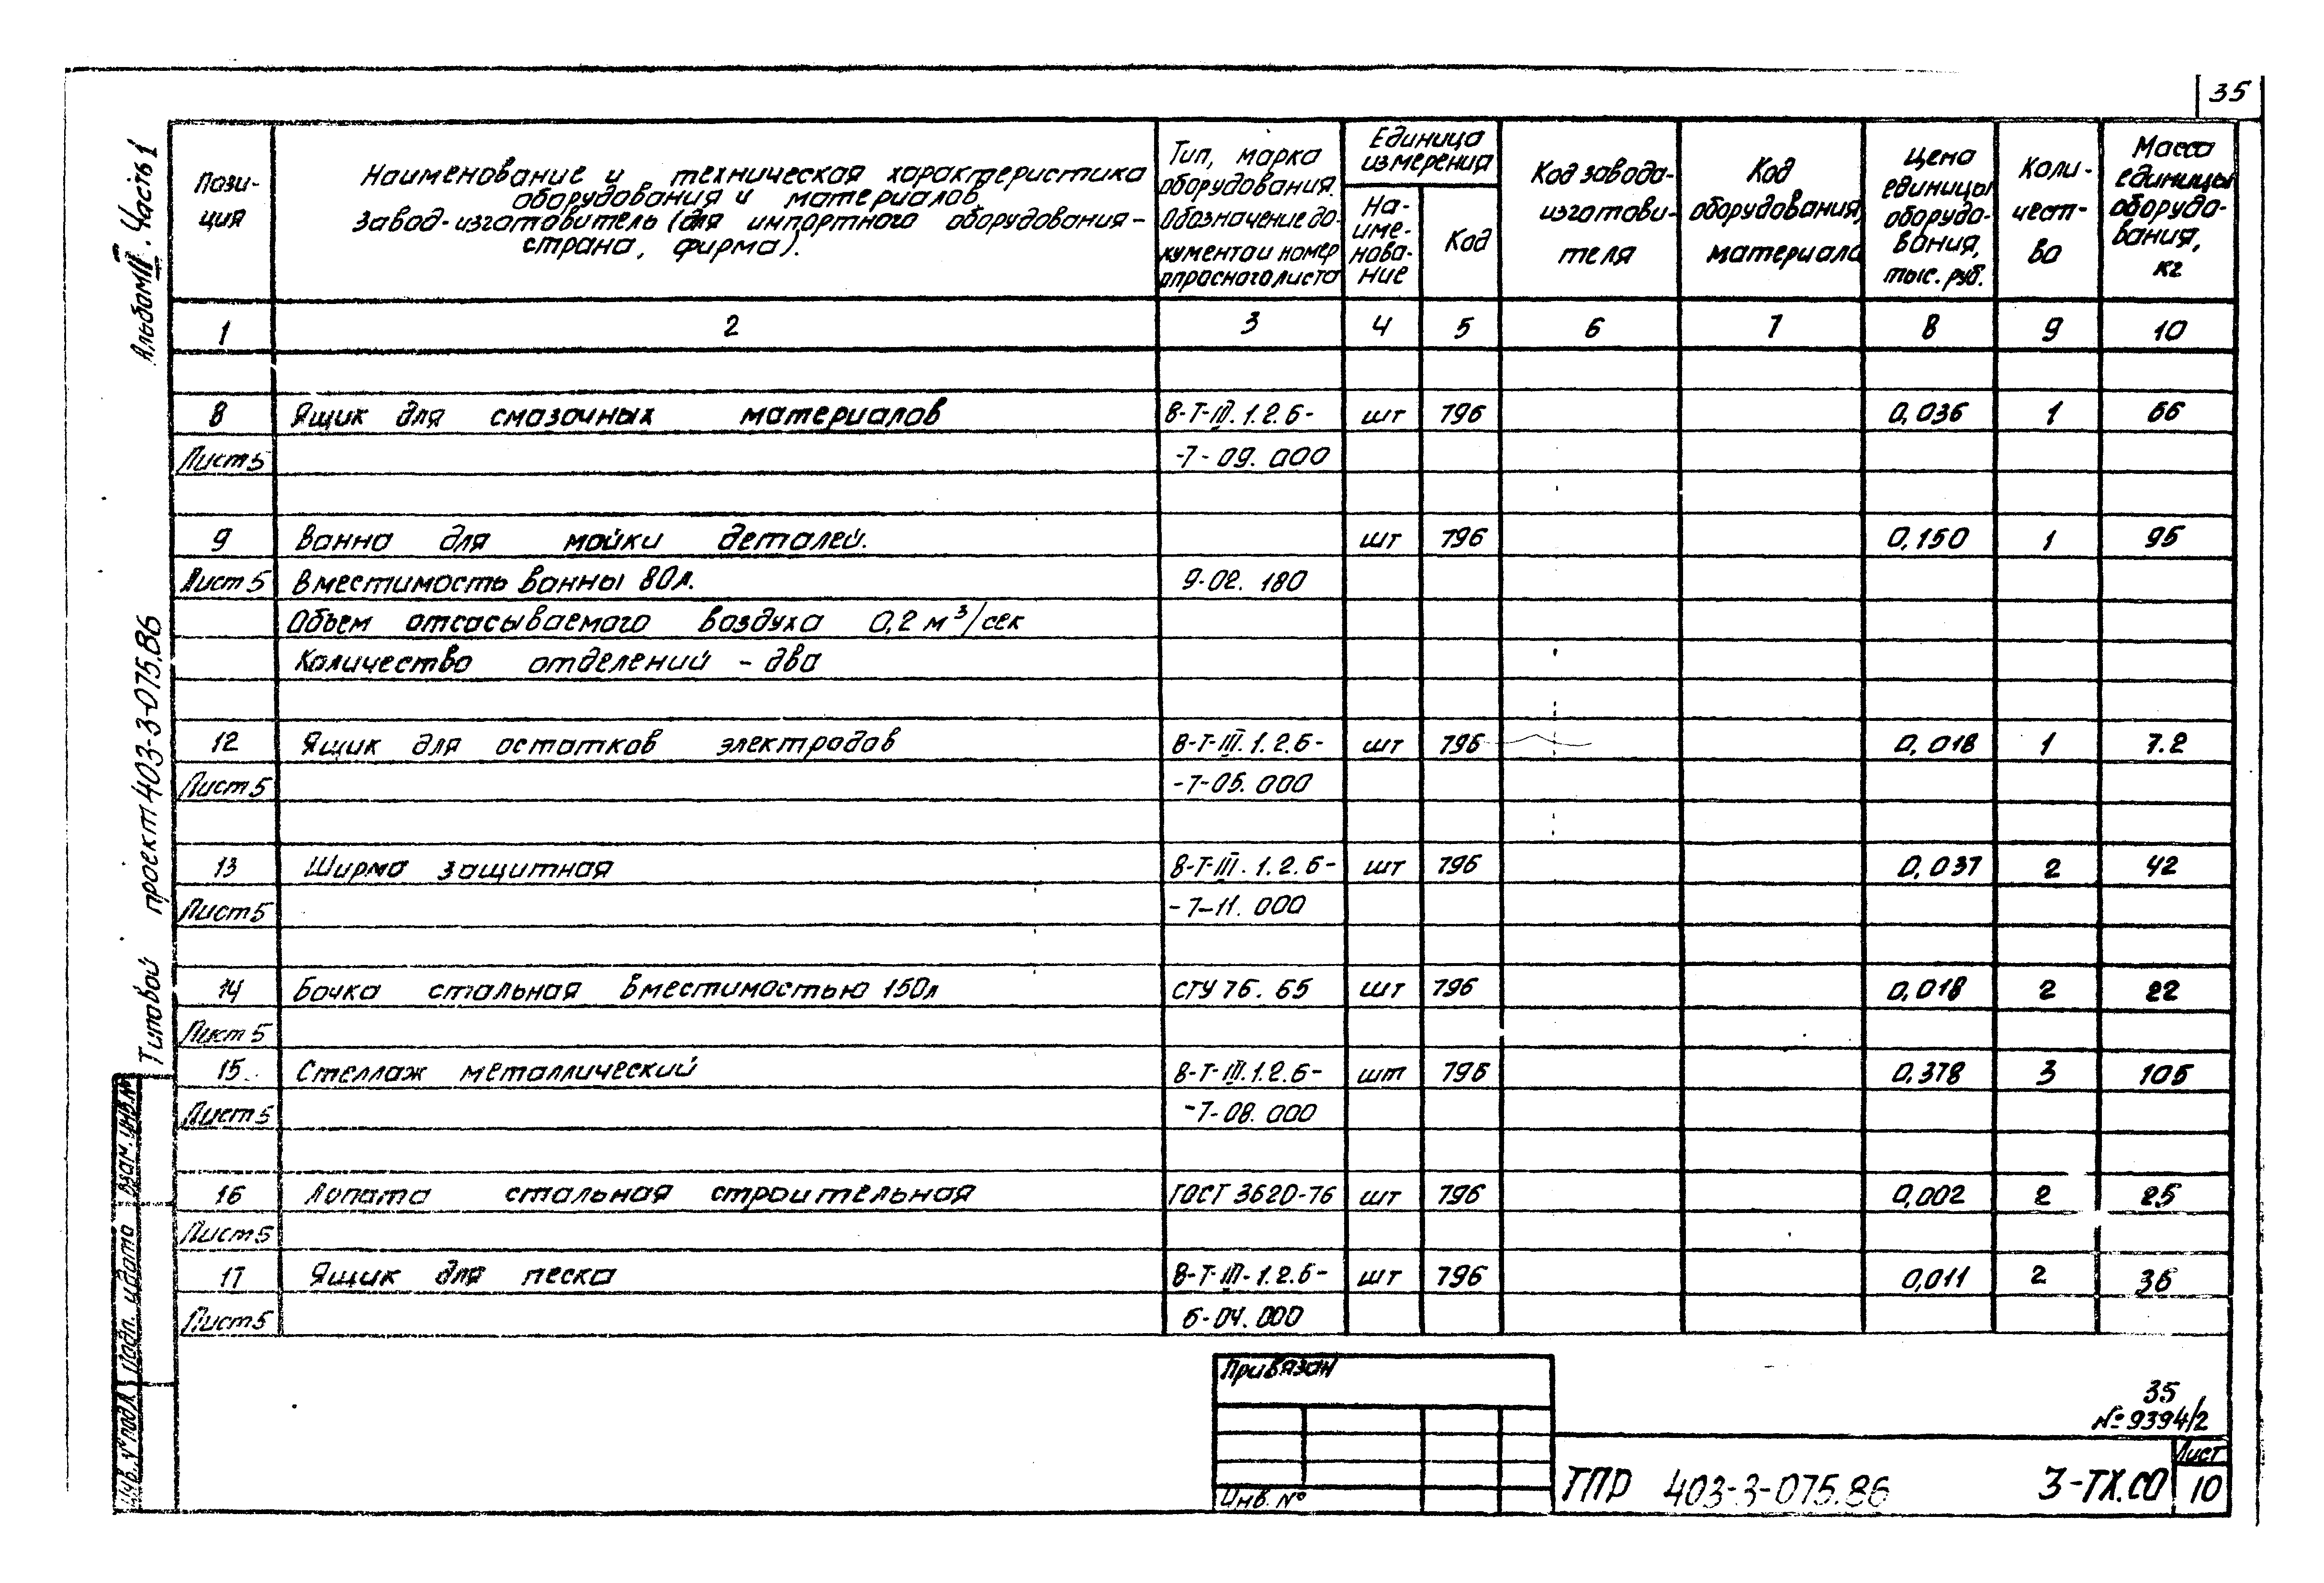 35
Альбом III. Часть 1
Типовой проект 403-3-075.86
Пози-
ция
Наименование и техническая характеристика
оборудования и материалов
Завод-изготовитель (для импортного оборудования-
страна, фирма).
Тип, марка
оборудования.
Обозначение до-
кумента и номер
опросного листа
Единица
измерения
На-
име-
нова-
ние
Код
Код завода-
изготови-
теля
Код
оборудования,
материала
Цена
единицы
оборудо-
вания,
тыс. руб.
Коли-
чест-
во
Масса
единицы
оборудо-
вания,
кг
1 2 3 4 5 6 7 8 9 10
8 Ящик для смазочных материалов 8-Т-III.1.2.6- шт 796 0,036 1 66
Лист 5 -7-09.000
9 Ванна для мойки деталей. шт 796 0,150 1 95
Лист 5 Вместимость ванны 80л. 9-02.180
Объем отсасываемого воздуха 0,2 м³/сек
Количество отделений - два
12 Ящик для остатков электродов 8-Т-III.1.2.6- шт 796 0,018 1 7.2
Лист 5 -7-05.000
13 Ширма защитная 8-Т-III.1.2.6- шт 796 0,037 2 42
Лист 5 -7-11.000
14 Бочка стальная вместимостью 150л СТУ 76.65 шт 796 0,018 2 22
Лист 5
15 Стеллаж металлический 8-Т-III.1.2.6- шт 796 0,378 3 105
Лист 5 -7-08.000
16 Лопата стальная строительная ГОСТ 3620-76 шт 796 0,002 2 2.5
Лист 5
17 Ящик для песка 8-Т-III-1.2.6- шт 796 0,011 2 36
Лист 5 6-04.000
Взам. инв. №
Подп. и дата
Инв. № подл.
Привязан
Инв. №
35
№ 9394/2
ТПР 403-3-075.86 3-ТХ.СО
Лист
10